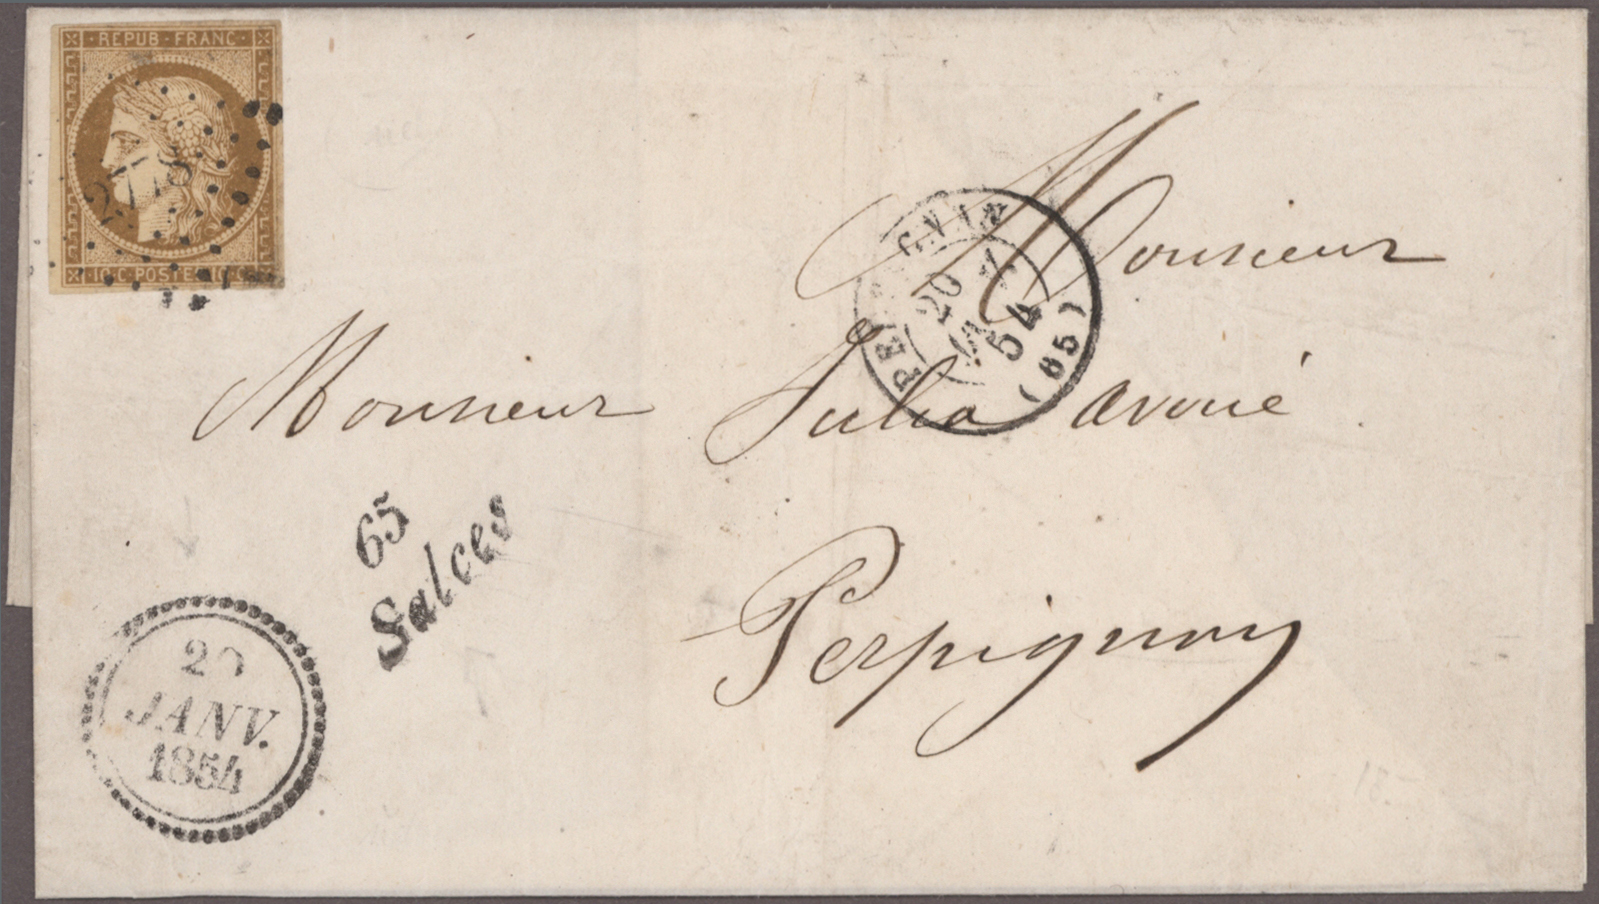 REPUB · FRANC ·
2778
10 · C · POSTES · 10 · C
PERPIGNAN
20
54
(65)
Monsieur
Monsieur Julia avoué
65
Salces
Perpignan
20
JANV.
1854